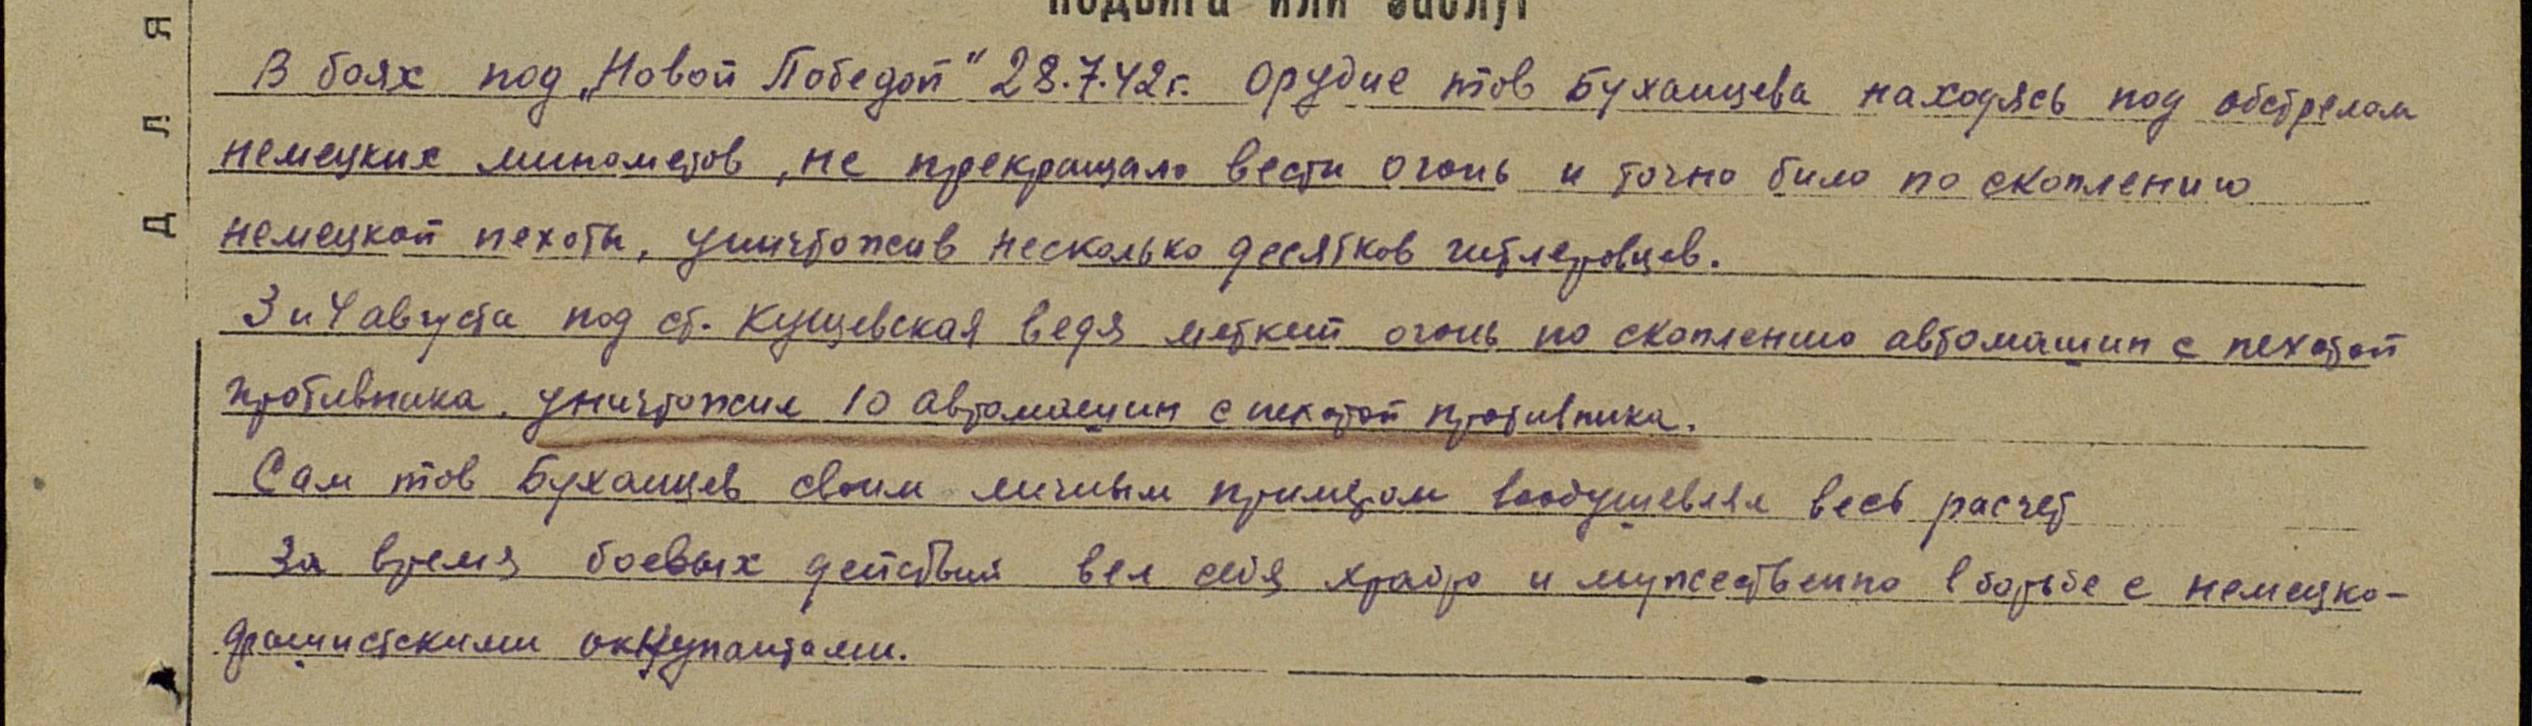 подвига или заслуг
Д Л Я
В боях под „Новой Победой" 28.7.42г. орудие тов Буханцева находясь под обстрелом
немецких минометов, не прекращало вести огонь и точно било по скоплению
немецкой пехоты, уничтожив несколько десятков гитлеровцев.
3 и 4 августа под ст. Кущевская ведя меткий огонь по скоплению автомашин с пехотой
противника. уничтожил 10 автомашин с пехотой противника.
Сам тов Буханцев своим личным примером воодушевлял весь расчет
За время боевых действий вел себя храбро и мужественно в борьбе с немецко-
фашистскими оккупантами.